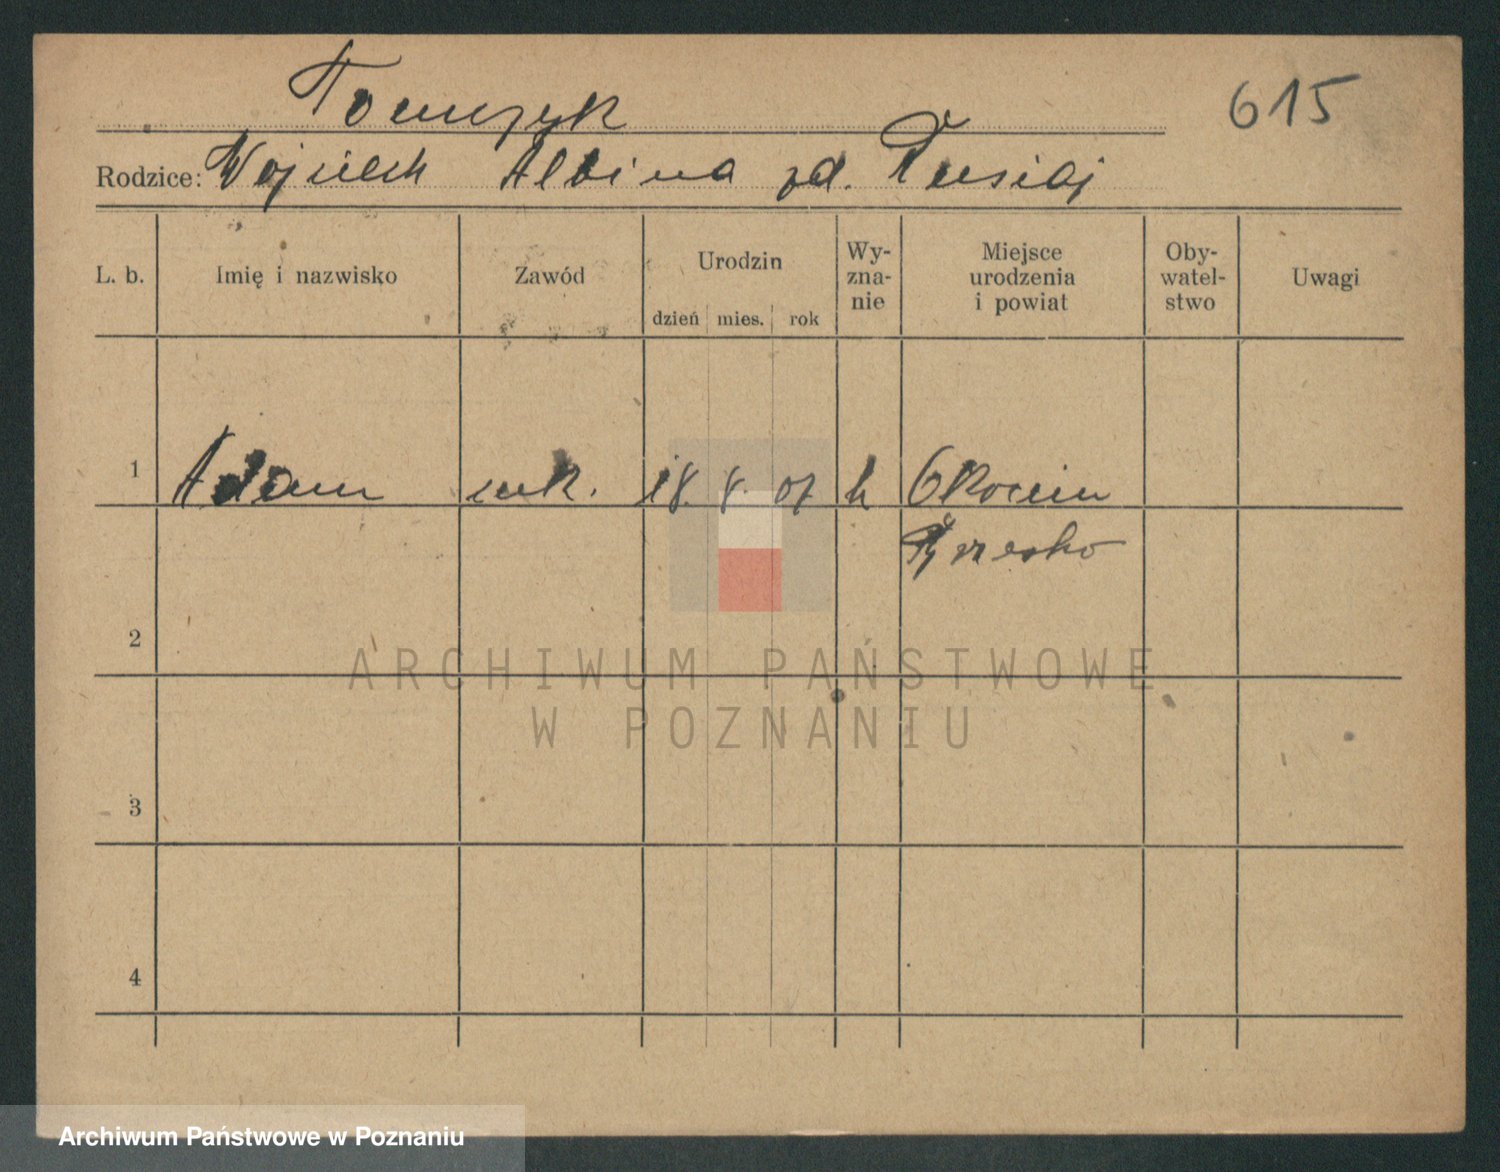 Tomczyk 615
Rodzice: Wojciech Albina zd.
L. b. Imię i nazwisko Zawód Urodzin dzień mies. rok Wy-zna-nie Miejsce urodzenia i powiat Oby-watel-stwo Uwagi
1 Adam 18. 8. 07 k Okocim
Brzesko
2
3
4
ARCHIWUM PAŃSTWOWE
W POZNANIU
Archiwum Państwowe w Poznaniu